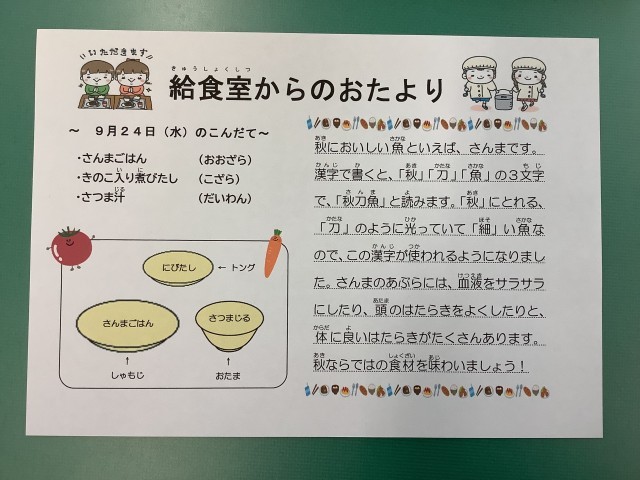 いただきます
給食室からのおたより
～ ９月２４日（水）のこんだて～
・さんまごはん （おおざら）
・きのこ入り煮びたし （こざら）
・さつま汁 （だいわん）
にびたし ← トング
さんまごはん さつまじる
↑ ↑
しゃもじ おたま
秋においしい魚といえば、さんまです。
漢字で書くと、「秋」「刀」「魚」の３文字
で、「秋刀魚」と読みます。「秋」にとれる、
「刀」のように光っていて「細」い魚な
ので、この漢字が使われるようになりまし
た。さんまのあぶらには、血液をサラサラ
にしたり、頭のはたらきをよくしたりと、
体に良いはたらきがたくさんあります。
秋ならではの食材を味わいましょう！